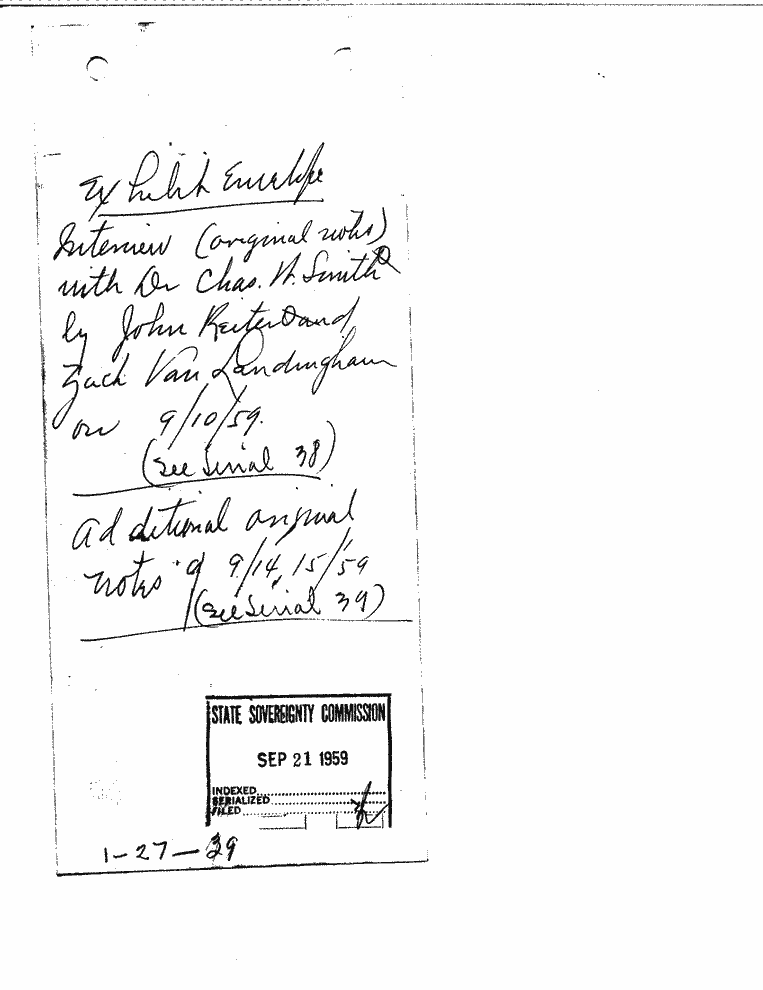 Exhibit Envelope
Interview (original notes)
with Dr Chas. W. Smith
by John Reiter and
Zack Van Landingham
on 9/10/59.
(See Serial 38)
Additional original
notes of 9/14, 15/59
(see Serial 39)
STATE SOVEREIGNTY COMMISSION
SEP 21 1959
INDEXED
SERIALIZED
FILED
1-27-39